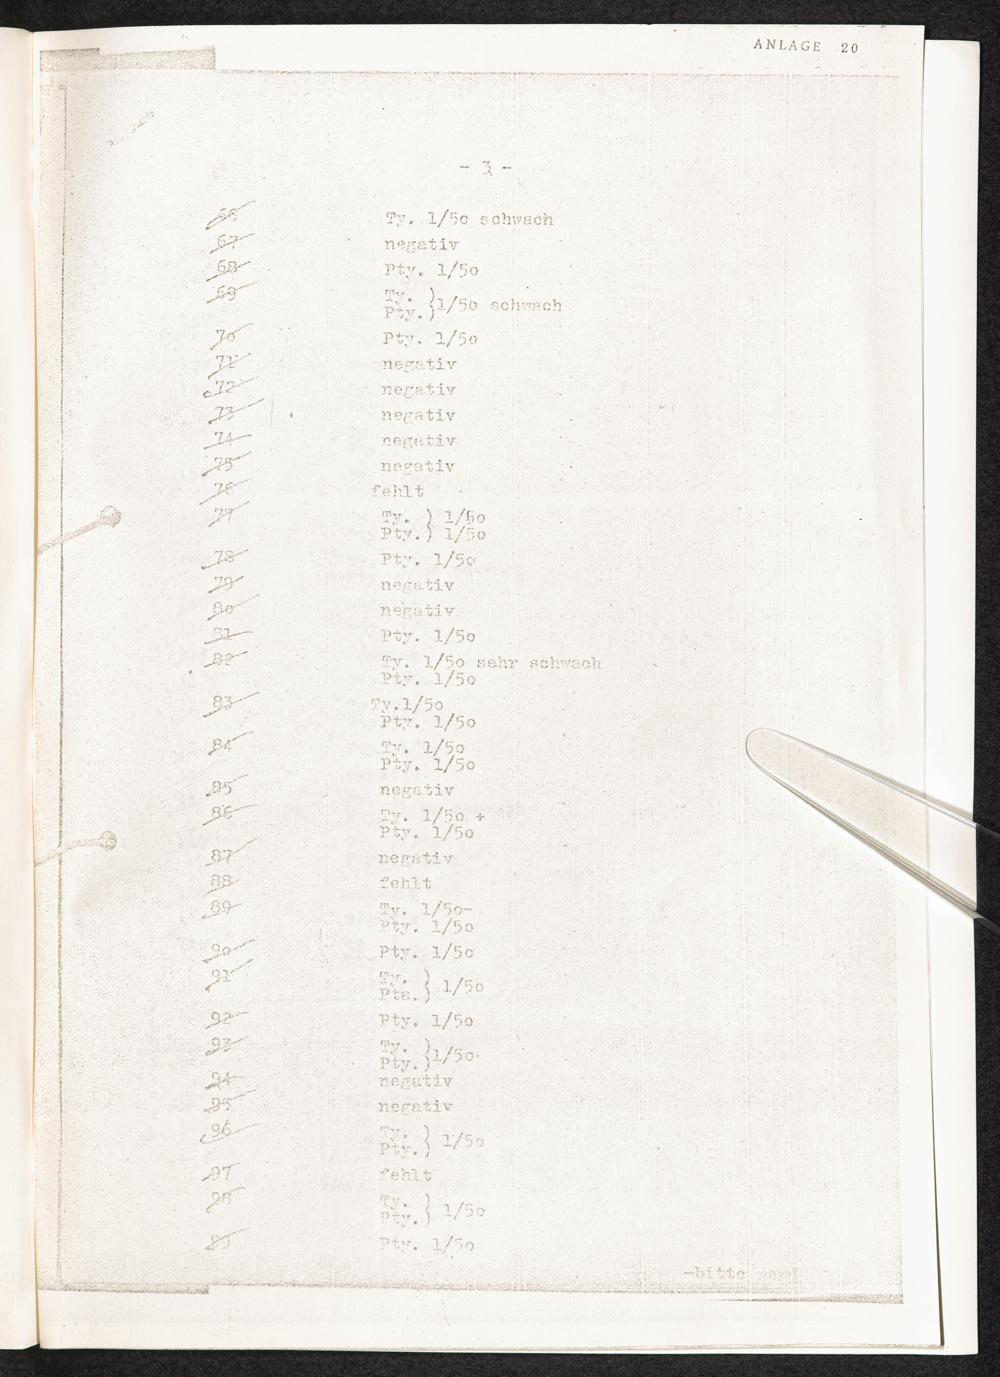 ANLAGE 20
- 3 -
66 Ty. 1/5o schwach
67 negativ
68 Pty. 1/5o
69 Ty. } 1/5o schwach
Pty. }
7o Pty. 1/5o
71 negativ
72 negativ
73 negativ
74 negativ
75 negativ
76 fehlt
77 Ty. } 1/5o
Pty. } 1/5o
78 Pty. 1/5o
79 negativ
8o negativ
81 Pty. 1/5o
82 Ty. 1/5o sehr schwach
Pty. 1/5o
83 Ty.1/5o
Pty. 1/5o
84 Ty. 1/5o
Pty. 1/5o
85 negativ
86 Ty. 1/5o +
Pty. 1/5o
87 negativ
88 fehlt
89 Ty. 1/5o-
Pty. 1/5o
9o Pty. 1/5o
91 Ty. } 1/5o
Pta. }
92 Pty. 1/5o
93 Ty. } 1/5o
Pty. }
94 negativ
95 negativ
96 Ty. } 1/5o
Pty. }
97 fehlt
98 Ty. } 1/5o
Pty. }
99 Pty. 1/5o
-bitte